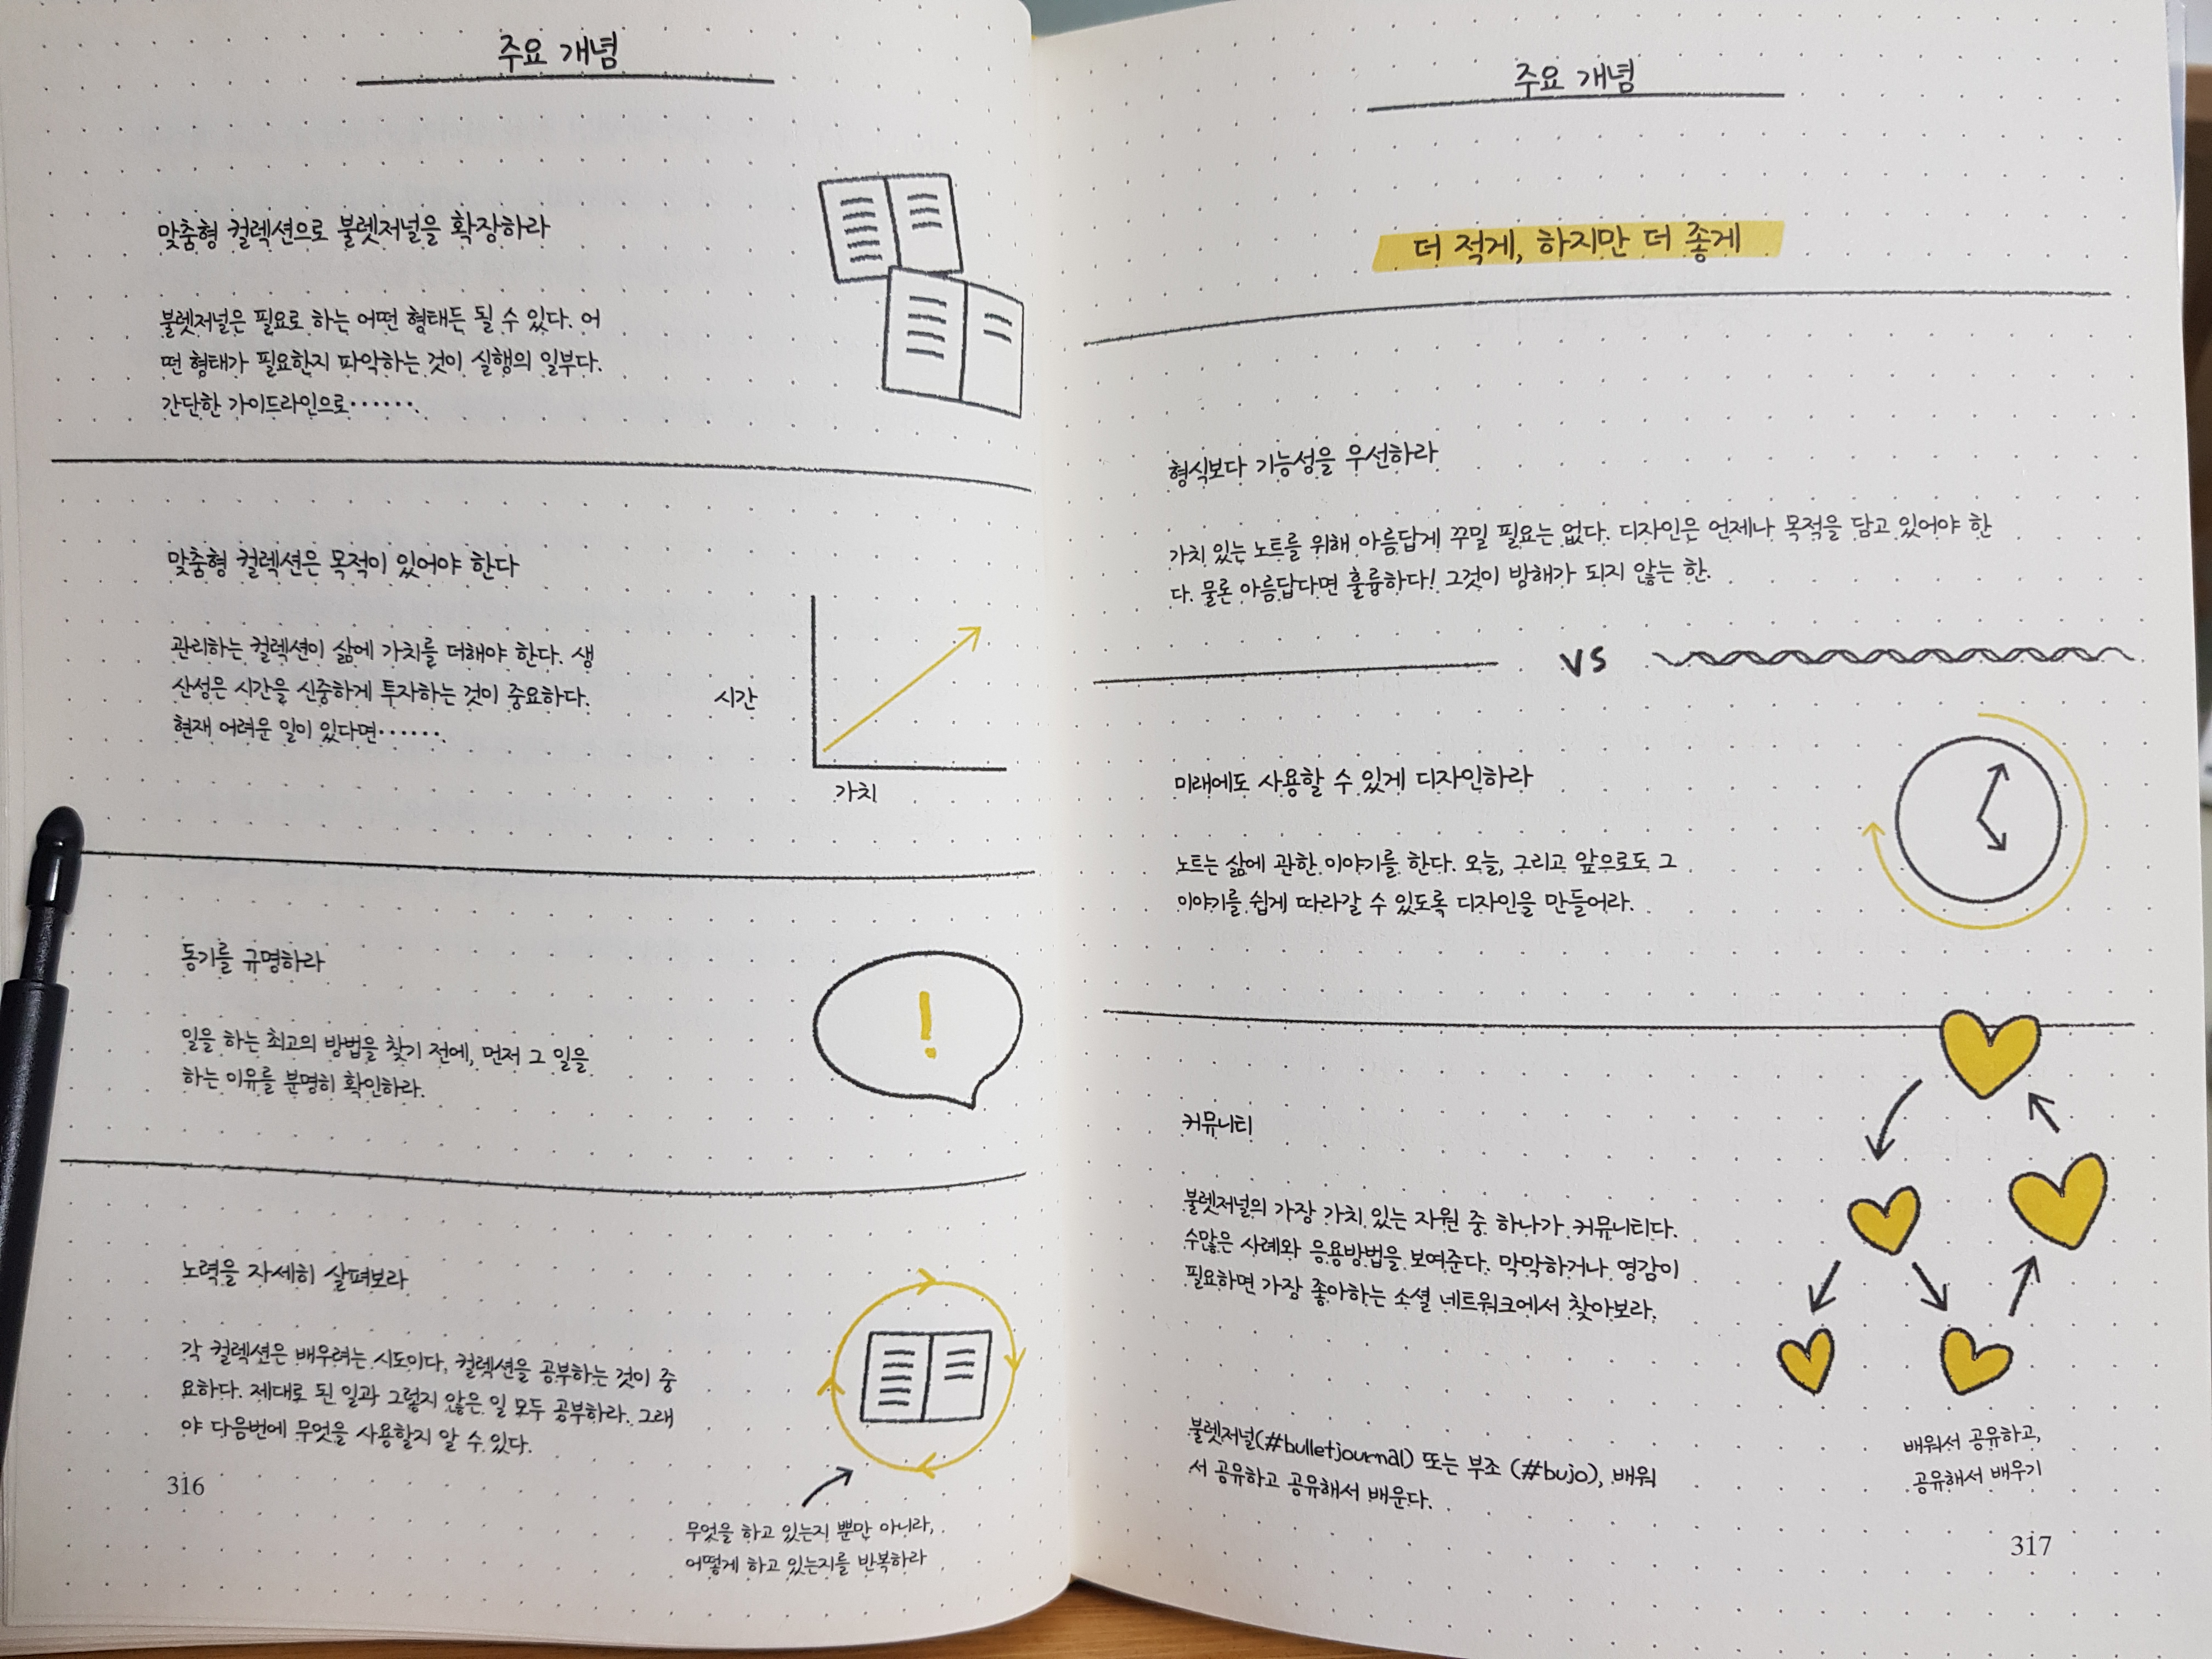 주요 개념
맞춤형 컬렉션으로 불렛저널을 확장하라
불렛저널은 필요로 하는 어떤 형태든 될 수 있다. 어
떤 형태가 필요한지 파악하는 것이 실행의 일부다.
간단한 가이드라인으로…….
맞춤형 컬렉션은 목적이 있어야 한다
관리하는 컬렉션이 삶에 가치를 더해야 한다. 생
산성은 시간을 신중하게 투자하는 것이 중요하다.
현재 어려운 일이 있다면…….
시간
가치
동기를 규명하라
일을 하는 최고의 방법을 찾기 전에, 먼저 그 일을
하는 이유를 분명히 확인하라.
!
노력을 자세히 살펴보라
각 컬렉션은 배우려는 시도이다, 컬렉션을 공부하는 것이 중
요하다. 제대로 된 일과 그렇지 않은 일 모두 공부하라. 그래
야 다음번에 무엇을 사용할지 알 수 있다.
316
무엇을 하고 있는지 뿐만 아니라,
어떻게 하고 있는지를 반복하라
주요 개념
더 적게, 하지만 더 좋게
형식보다 기능성을 우선하라
가치 있는 노트를 위해 아름답게 꾸밀 필요는 없다. 디자인은 언제나 목적을 담고 있어야 한
다. 물론 아름답다면 훌륭하다! 그것이 방해가 되지 않는 한.
VS
미래에도 사용할 수 있게 디자인하라
노트는 삶에 관한 이야기를 한다. 오늘, 그리고 앞으로도 그
이야기를 쉽게 따라갈 수 있도록 디자인을 만들어라.
커뮤니티
불렛저널의 가장 가치 있는 자원 중 하나가 커뮤니티다.
수많은 사례와 응용방법을 보여준다. 막막하거나 영감이
필요하면 가장 좋아하는 소셜 네트워크에서 찾아보라.
불렛저널(#bulletjournal) 또는 부조 (#bujo), 배워
서 공유하고 공유해서 배운다.
배워서 공유하고,
공유해서 배우기
317